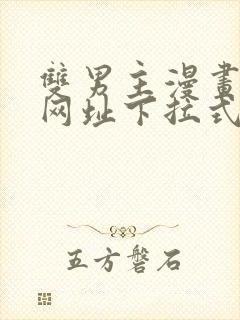 雙男主漫畫
网址下拉式
五方磐石